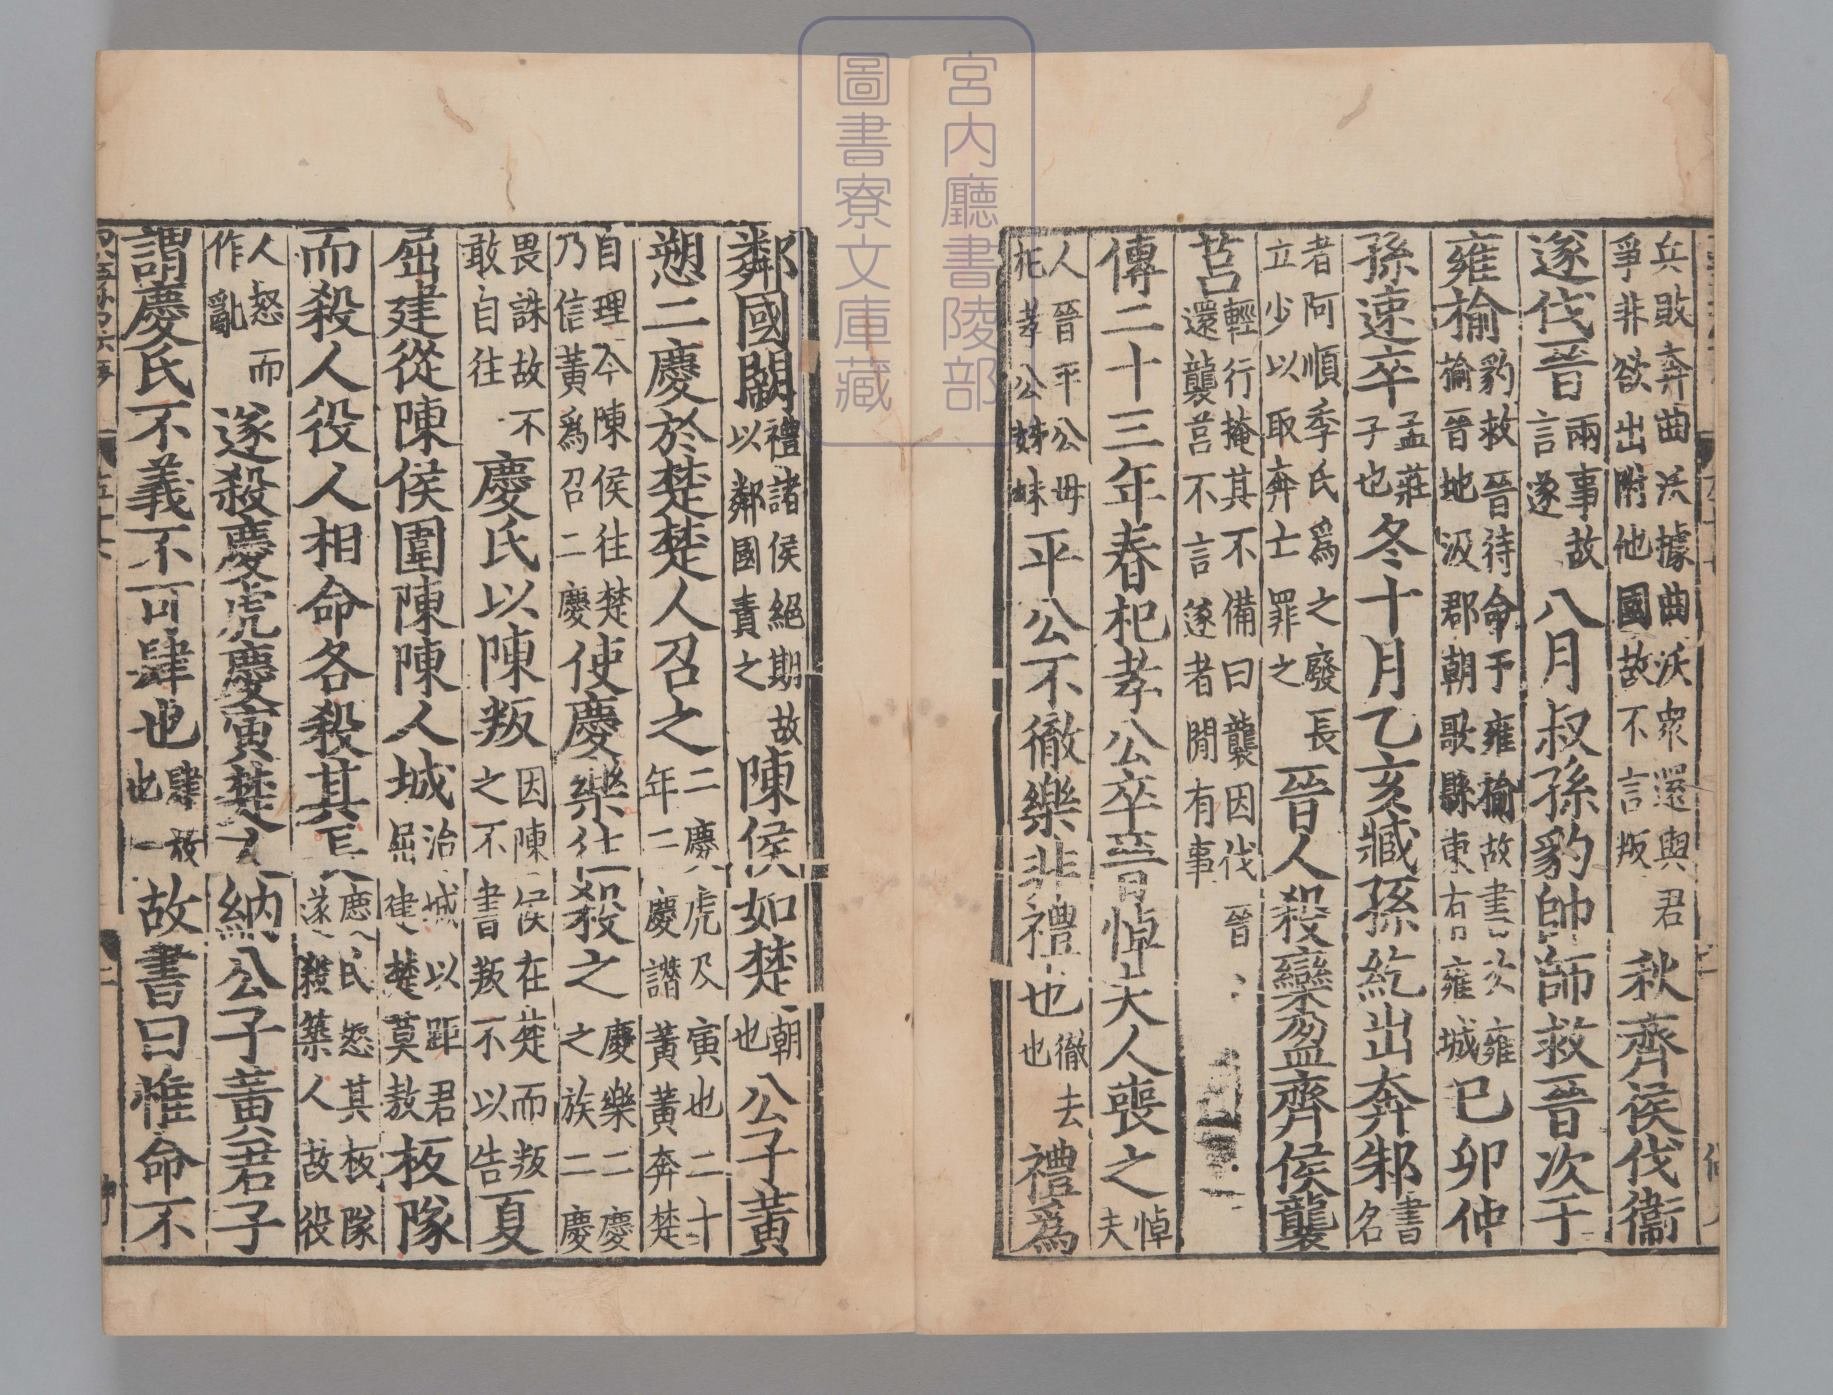 兵敗奔曲沃據曲沃衆還與君
爭非欲出附他國故不言叛
秋齊侯伐衞
遂伐晉
兩事故
言遂
八月叔孫豹帥師救晉次于
雍榆
豹救晉待命于雍榆故書次雍
榆晉地汲郡朝歌縣東有雍城
已卯仲
孫速卒
孟莊
子也
冬十月乙亥臧孫紇出奔邾
書
名
者阿順季氏爲之廢長
立少以取奔士罪之
晉人殺欒盈齊侯襲
莒
輕行掩其不備曰襲因伐晉
還襲莒不言遂者閒有事
傳二十三年春杞孝公卒晉悼夫人喪之
悼
夫
人晉平公母
杞孝公姊妹
平公不徹樂非禮也
徹去
也
禮爲
鄰國闕
禮諸侯絕期故
以鄰國責之
陳侯如楚
朝
也
公子黃
愬二慶於楚楚人召之
二慶虎及寅也二十
年二慶譖黃黃奔楚
自理今陳侯往楚
乃信黃爲召二慶
使慶樂往殺之
慶樂二慶
之族二慶
畏誅故不
敢自往
慶氏以陳叛
因陳侯在楚而叛
之不書叛不以告
夏
屈建從陳侯圍陳陳人城
治城以距君
屈建楚莫敖
板隊
而殺人役人相命各殺其長
慶氏忿其板隊
遂殺築人故役
人怒而
作亂
遂殺慶虎慶寅楚人納公子黃君子
謂慶氏不義不可肆也
肆放
也
故書曰惟命不
宮内廳書陵部
圖書寮文庫藏